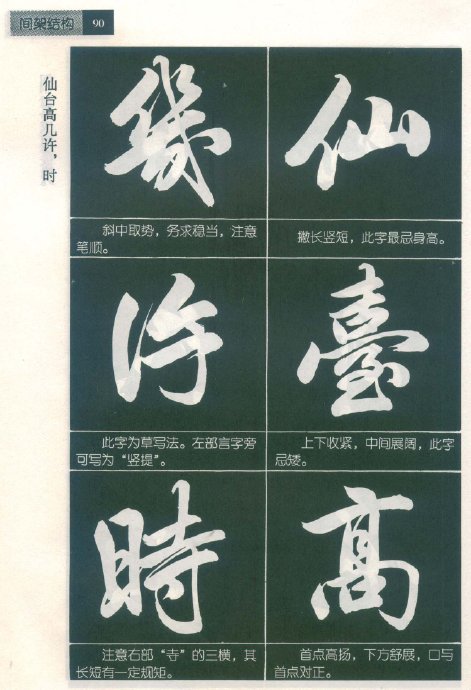 间架结构 90
仙台高几许，时
仙
撇长竖短，此字最忌身高。
臺
上下收紧，中间展阔，此字
忌矮。
高
首点高扬，下方舒展，口与
首点对正。
幾
斜中取势，务求稳当，注意
笔顺。
许
此字为草写法。左部言字旁
可写为“竖提”。
時
注意右部“寺”的三横，其
长短有一定规矩。